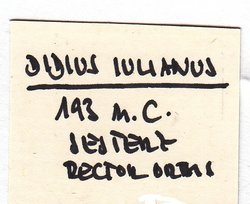 DIDIUS IULIANUS
193 M.C.
SESTERZ
RECTOR ORBIS